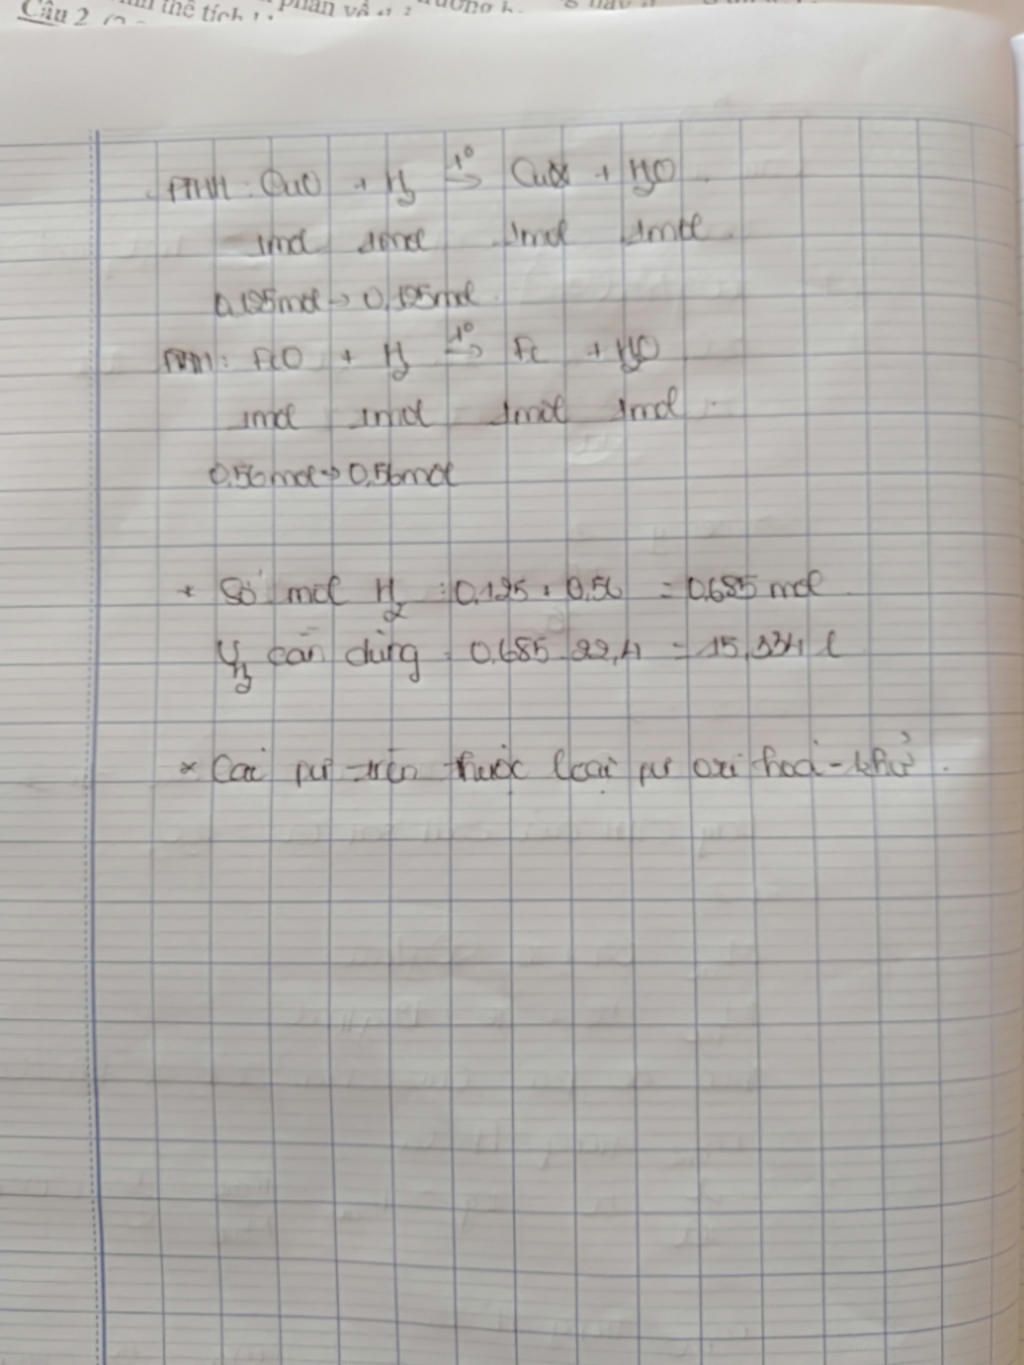 Câu 2
thể tích
phân
PTHH: CuO + H₂ t° → Cu + H₂O
1mol 1mol 1mol 1mol
0,125mol → 0,125mol
PTHH: FeO + H₂ t° → Fe + H₂O
1mol 1mol 1mol 1mol
0,56mol → 0,56mol
* Số mol H₂ : 0,125 + 0,56 = 0,685 mol
V H₂ cần dùng : 0,685.22,4 = 15,334 l
* Các pư trên thuộc loại pư oxi hoá - khử.